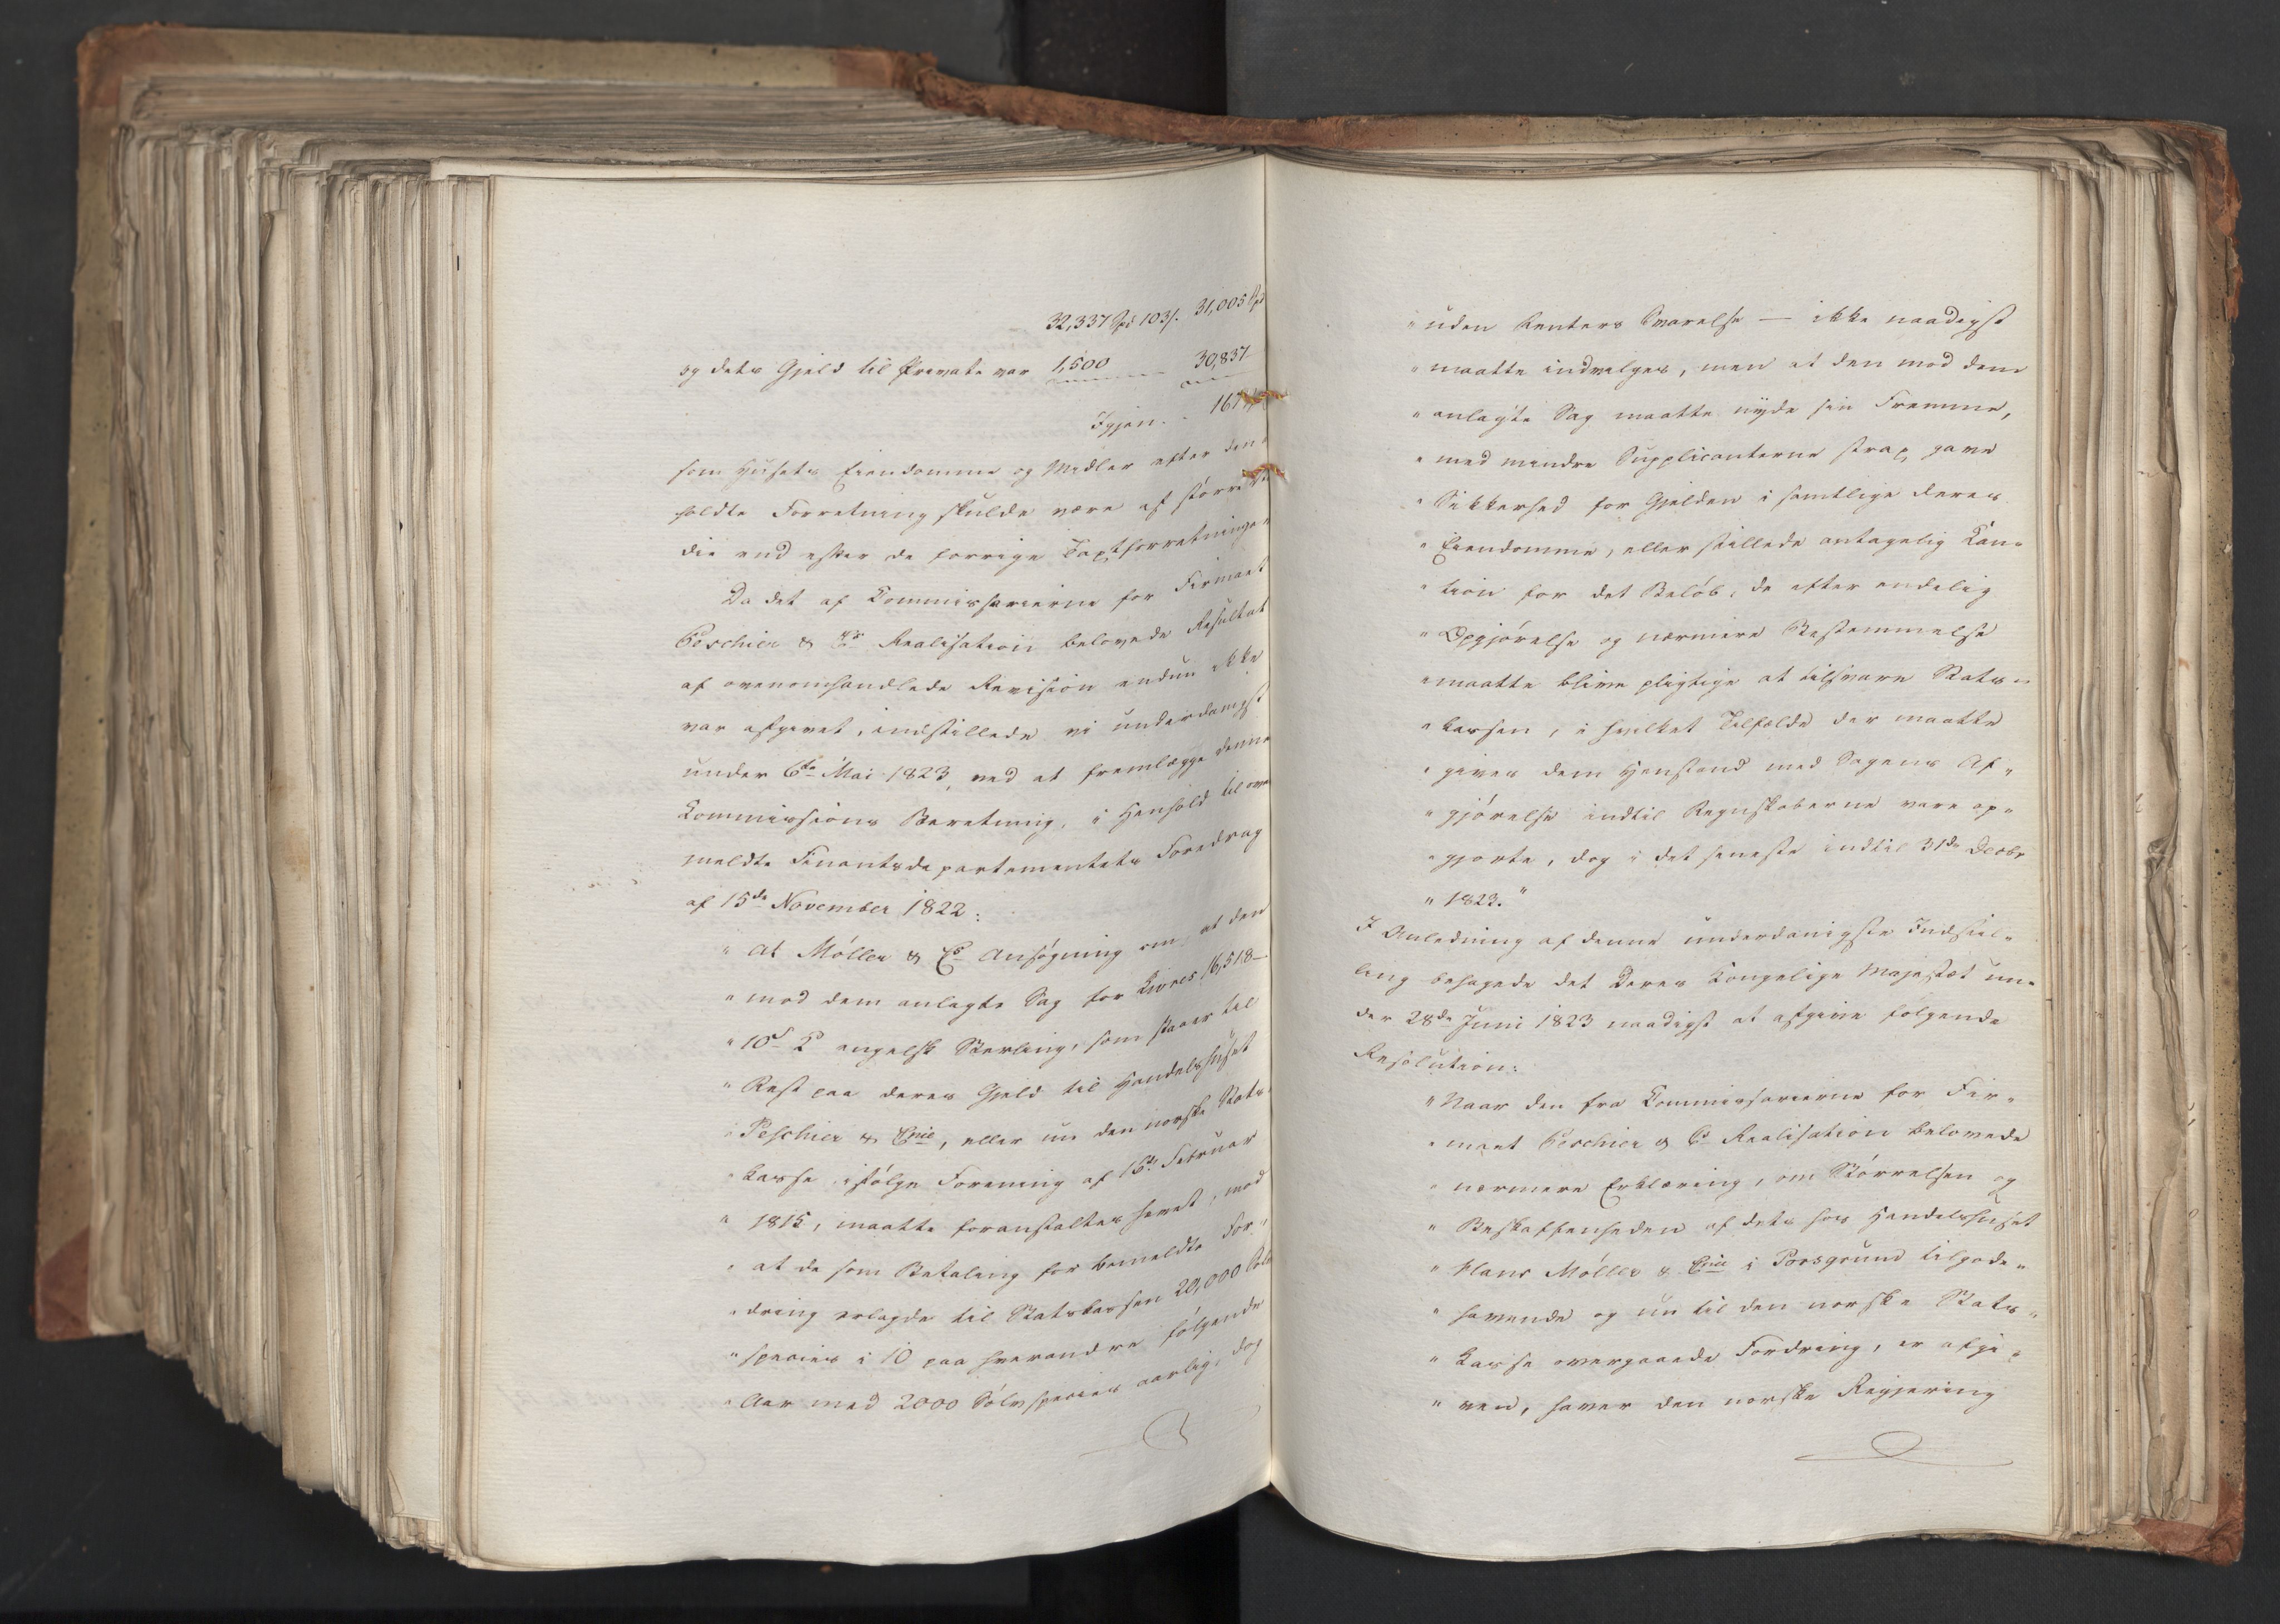 32,337 Spd 103 s. 31,005 Spd
og dets Gjeld til Private var 1,500 30,837
Igjen. - 167
som Husets Eiendomme og Midler efter den
holdte Forretning skulde være af større
die end efter de forrige Taxtforretninger
Da det af Commissarierne for Firmaet
Peschier & Co Realisation belovede Resultat
af ovenomhandlede Revision endnu ikke
var afgivet, indstillede vi underdanigst
under 6te Mai 1823, ved at fremlægge denne
Commissions Beretning, i Henhold til oven
meldte Finantsdepartementets Foredrag
af 15de November 1822:
"at Møller & Co Ansøgning om, at den
"mod dem anlagte Sag for Livres 16,518 —
"10 s 2 d engelsk Sterling, som staaer til
"Rest paa deres Gjeld til Handelshuset
"Peschier & Cnie, eller nu den norske Stats
"kasse ifølge Forening af 16de Februar
"1815, maatte foranstaltes hævet, mod
"at de som Betaling for bemeldte For"
"dring erlagde til Statskassen 20,000 Sølv
"species i 10 paa hverandre følgende
"Aar med 2000 Sølvspecies aarlig, dog
"uden Renters Svarelse — ikke naadigst
"maatte indvilges, men at den mod dem
"anlagte Sag maatte nyde sin Fremme,
"med mindre Supplicanterne strax gave
"Sikkerhed for Gjelden i samtlige deres
"Eiendomme, eller stillede antagelig Cau"
"tion for det Beløb, de efter endelig
"Opgjørelse og nærmere Bestemmelse
"maatte blive pligtige at tilsvare Stats"
"kassen, i hvilket Tilfælde der maatte
"gives dem Henstand med Sagens Af"
"gjørelse indtil Regnskaberne vare op"
"gjorte, dog i det seneste indtil 31de Decbr
"1823."
I Anledning af denne underdanigste Indstil"
ling behagede det Deres Kongelige Majestæt un"
der 28de Juni 1823 naadigst at afgive følgende
Resolution:
"Naar den fra Commissarierne for Fir"
"maet Peschier & Co Realisation belovede
"nærmere Erklæring, om Størrelsen og
"Beskaffenheden af dets hos Handelshuset
"Hans Møller & Cnie i Porsgrund tilgode"
"havende og nu til den norske Stats"
"kasse overgaaede Fordring, er afgi"
"ven, haver den norske Regjering